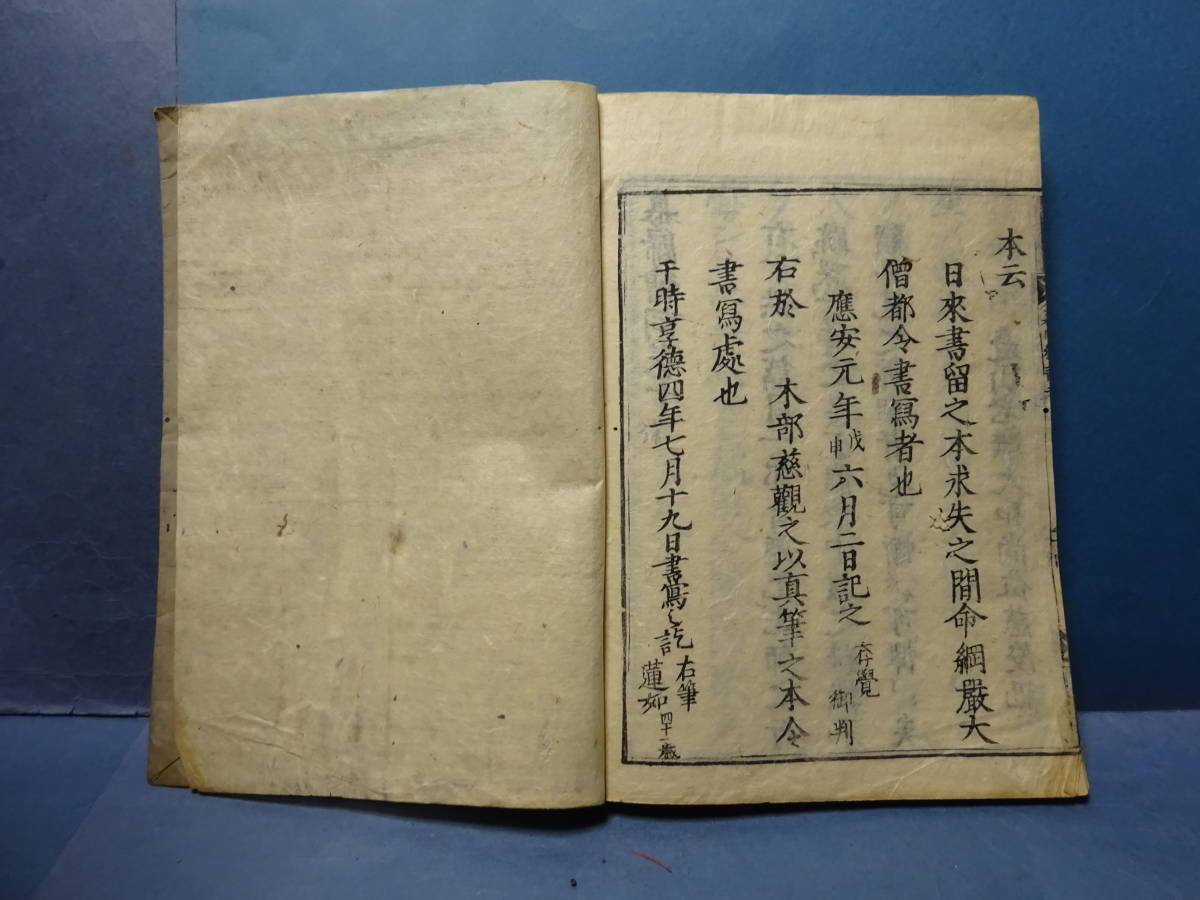 本云
日來書留之本求失之間命綱嚴大
僧都令書寫者也
應安元年戊申六月二日記之 存覺 御判
右於 木部慈觀之以真筆之本令
書寫處也
于時享德四年七月十九日書寫之訖 右筆 蓮如四十一歲